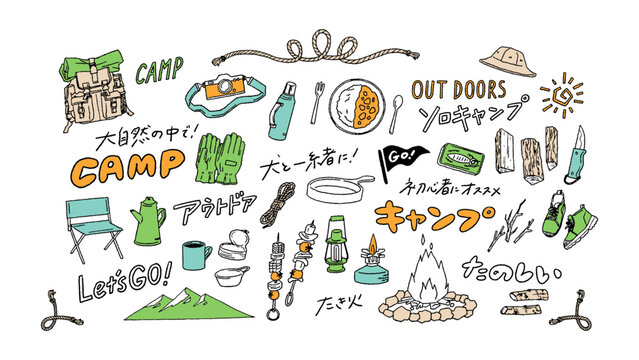 CAMP
OUT DOORS
ソロキャンプ
大自然の中で!
CAMP
犬と一緒者に!
GO!
初心者にオススメ
アウトドア
キャンプ
Let's GO!
たき火
たのしい